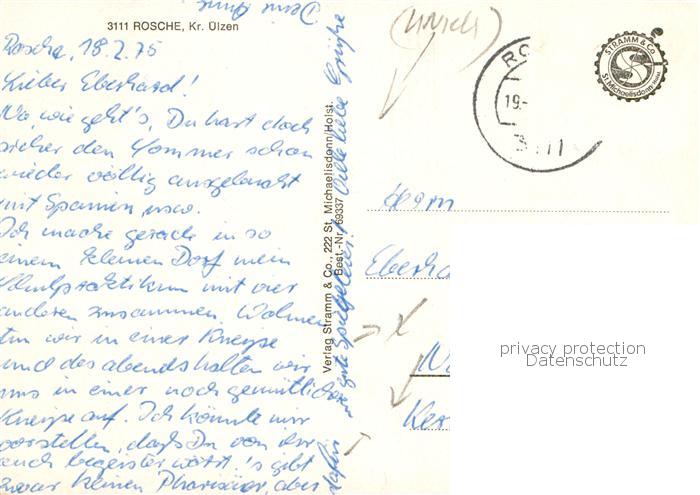 3111 ROSCHE, Kr. Ülzen
Rosche, 18.2.75
Lieber Eberhard!
Na, wie geht's, Du hast doch
sicher den Sommer schon
wieder völlig ausgebucht
mit Spanien, usw.
Ich mache gerade in so
einem kleinen Dorf mein
Schulpraktikum mit vier
anderen zusammen. Wohnen
tun wir in einer Kneipe
und des abends halten wir
uns in einer noch gemütlicheren
Kneipe auf. Ich könnte mir
vorstellen, daß Du von ihr
auch begeistert wärst. 's gibt
zwar keinen Pharisäer, aber
viele liebe Grüße
Verlag Stramm & Co., 222 St. Michaelisdonn/Holst.
Best.-Nr. 69337
STRAMM & Co
St. Michaelisdonn Holst.
RO
19.
3111
Herrn
Eberha
privacy protection
Datenschutz